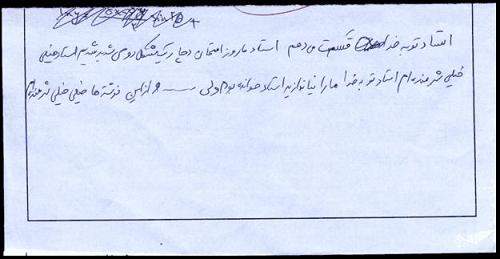 استاد تو به خدا قسمت می دهم استاد ما روز امتحان دچار یک مشکل روحی شدید شدیم استاد خیلی
خیلی شرمنده ام استاد تو به خدا ما را نیاندازید استاد خوانده بودم ولی ــــ و از این نوشته ها خیلی خیلی شرمنده ام